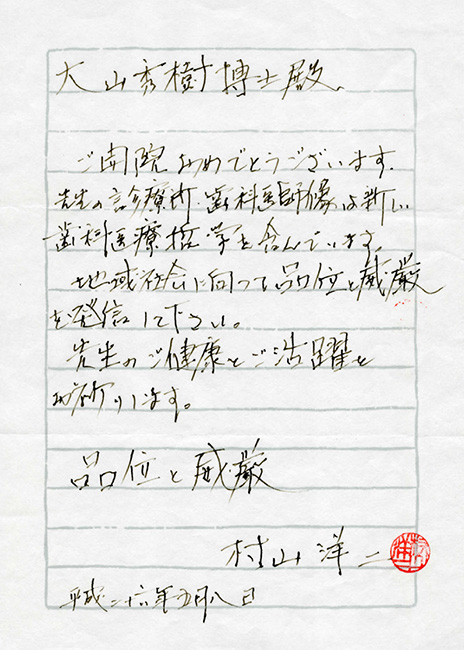 大山秀樹博士殿、
ご開院おめでとうございます.
先生の診療所.歯科医師像は新しい
歯科医療哲学を含んでいます。
地域社会に向って品位と威厳
を発信して下さい。
先生のご健康とご活躍を
お祈りします。
品位と威厳
村山洋二
平成二十六年五月八日